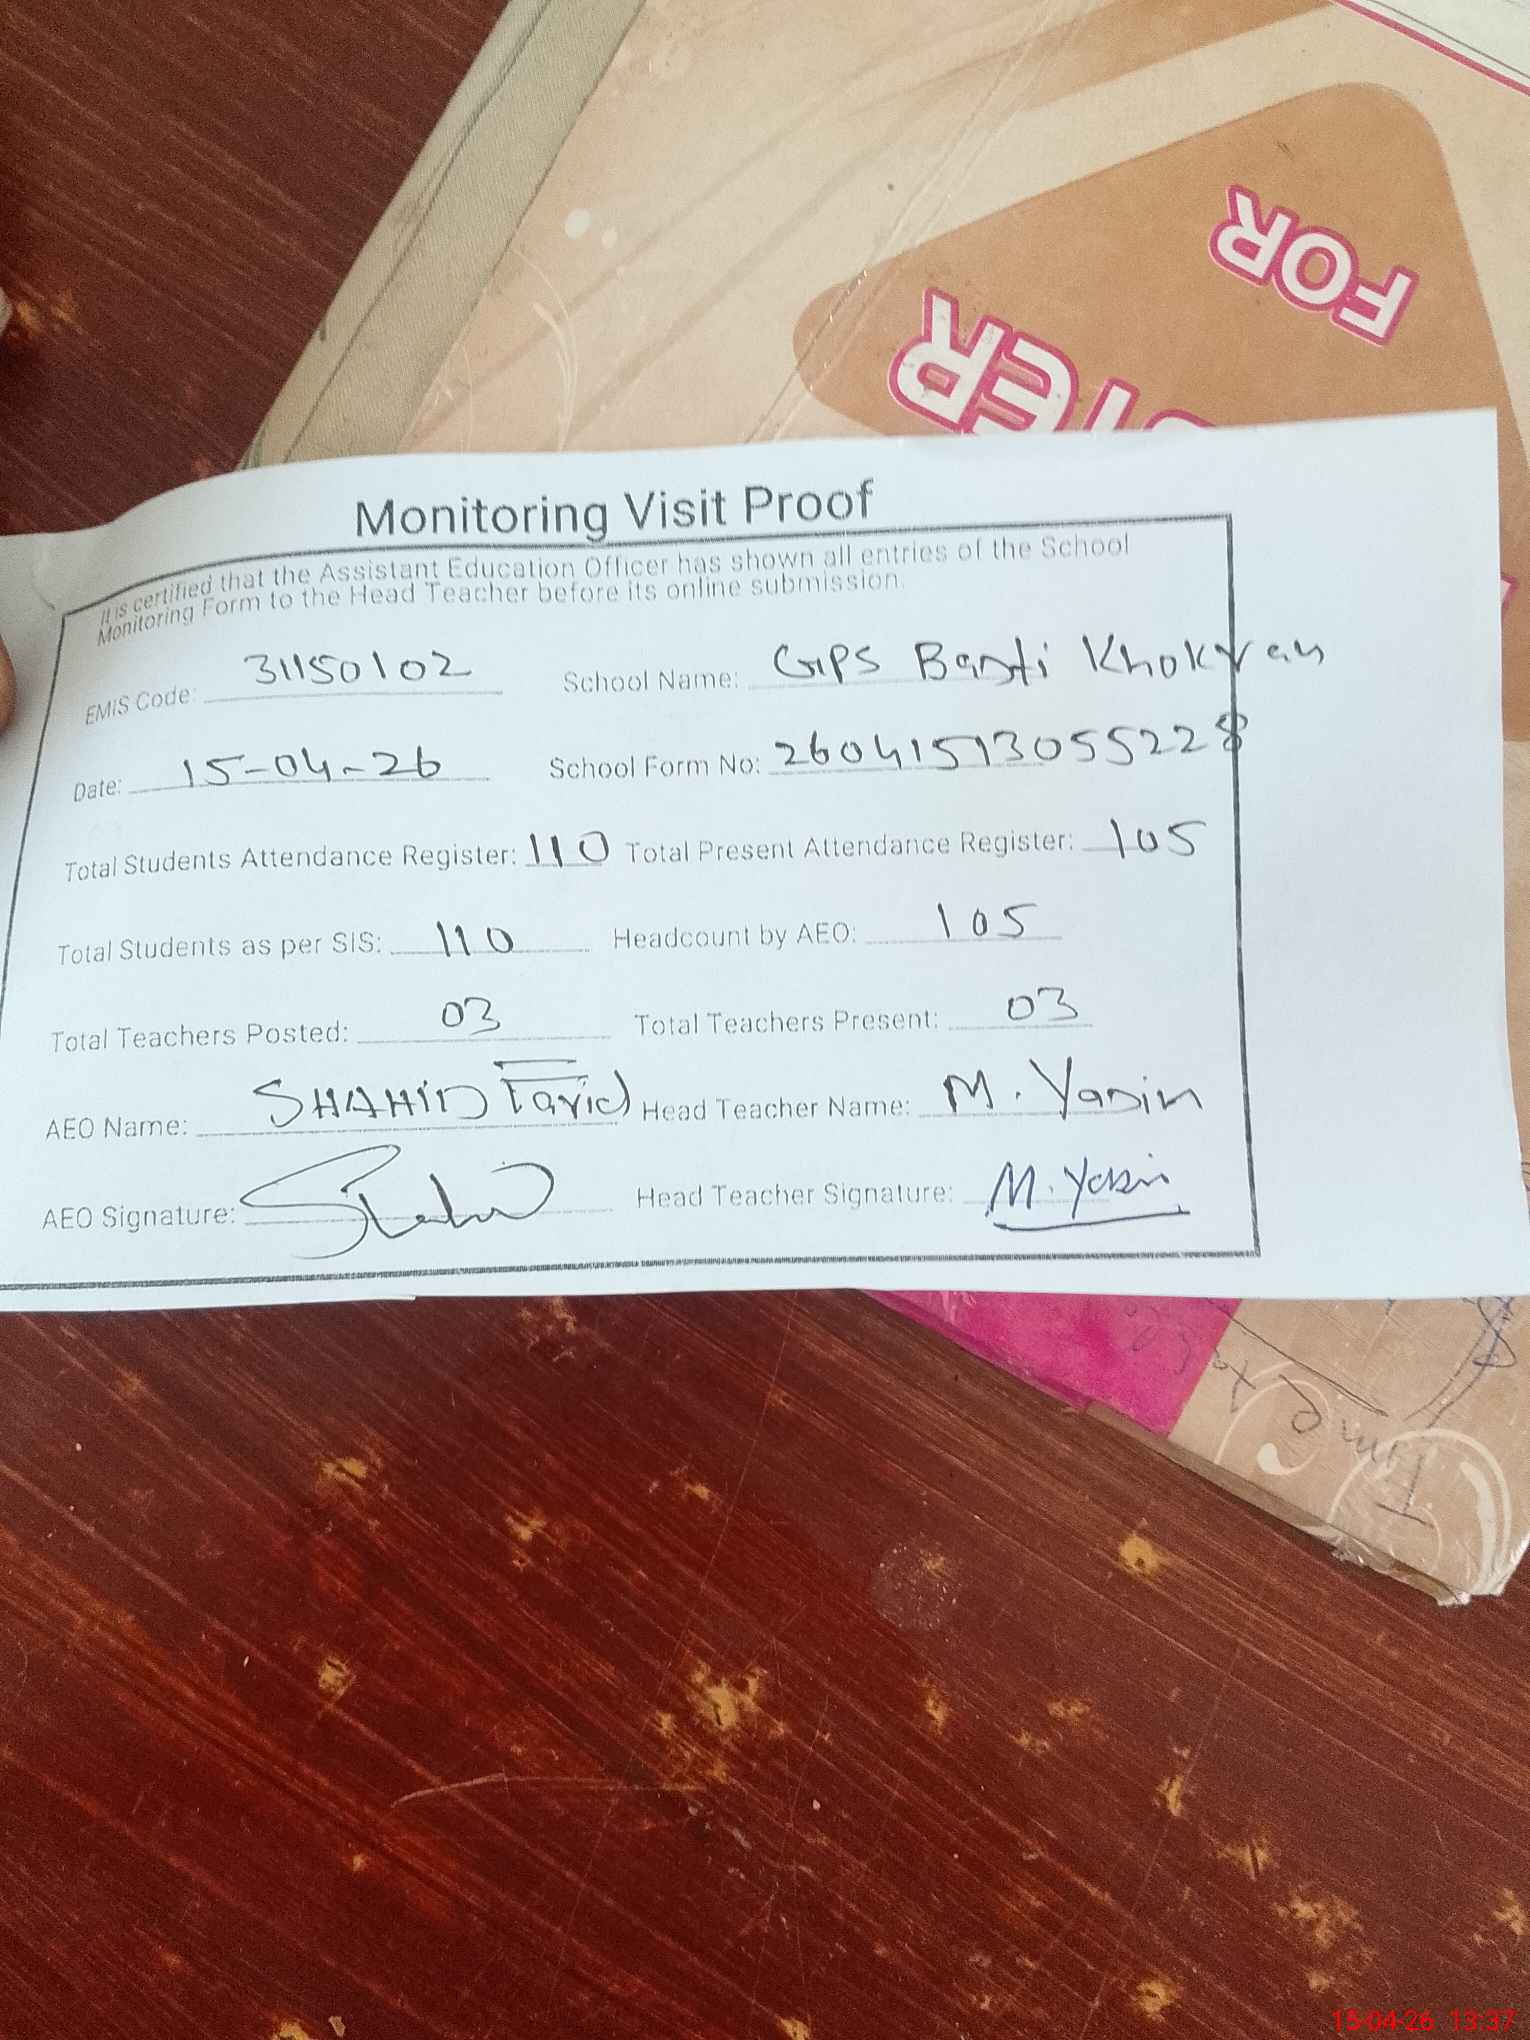 FOR
TER
Monitoring Visit Proof
It is certified that the Assistant Education Officer has shown all entries of the School
Monitoring Form to the Head Teacher before its online submission.
EMIS Code: 31150102 School Name: GPS Basti Khokran
Date: 15-04-26 School Form No: 26041513055228
Total Students Attendance Register: 110 Total Present Attendance Register: 105
Total Students as per SIS: 110 Headcount by AEO: 105
Total Teachers Posted: 03 Total Teachers Present: 03
AEO Name: SHAHID Farid Head Teacher Name: M. Yasin
AEO Signature: Head Teacher Signature: M. Yasin
Time
15-04-26 13:37